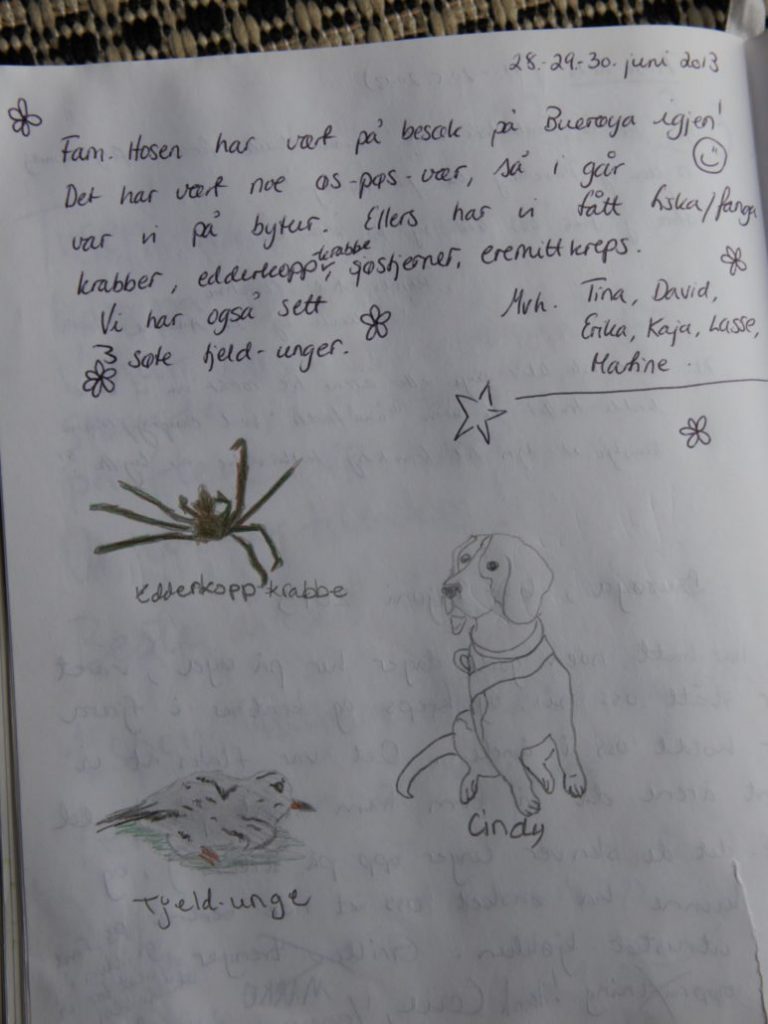 28.-29.-30. juni 2013
Fam. Hosen har vært på besøk på Buerøya igjen!
Det har vært noe øs-pøs-vær, så i går
var vi på bytur. Ellers har vi fått fiska/fanga
krabber, edderkopp-krabbe, sjøstjerner, eremittkreps.
Vi har også sett
3 søte tjeld-unger.
Mvh. Tina, David,
Erika, Kaja, Lasse,
Martine.
Edderkopp krabbe
Cindy
Tjeld-unge